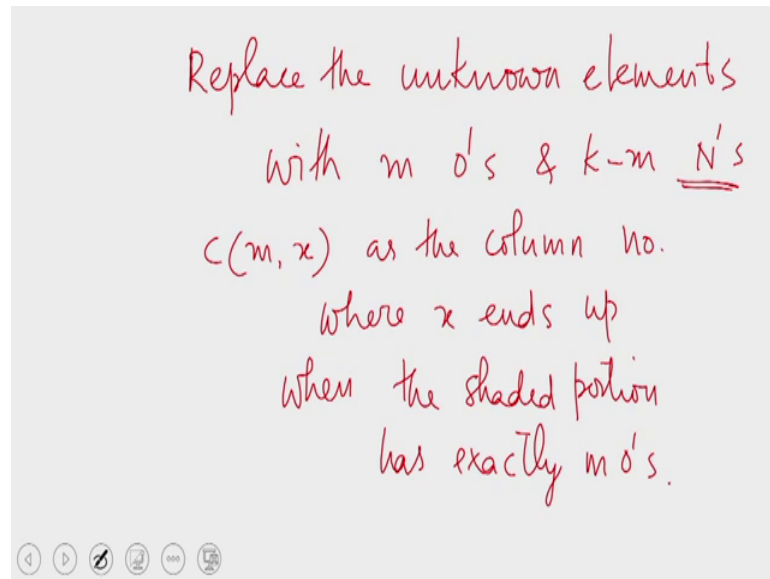 Replace the unknown elements
with m 0's & k-m N's
C(m, x) as the column no.
where x ends up
when the shaded portion
has exactly m 0's.